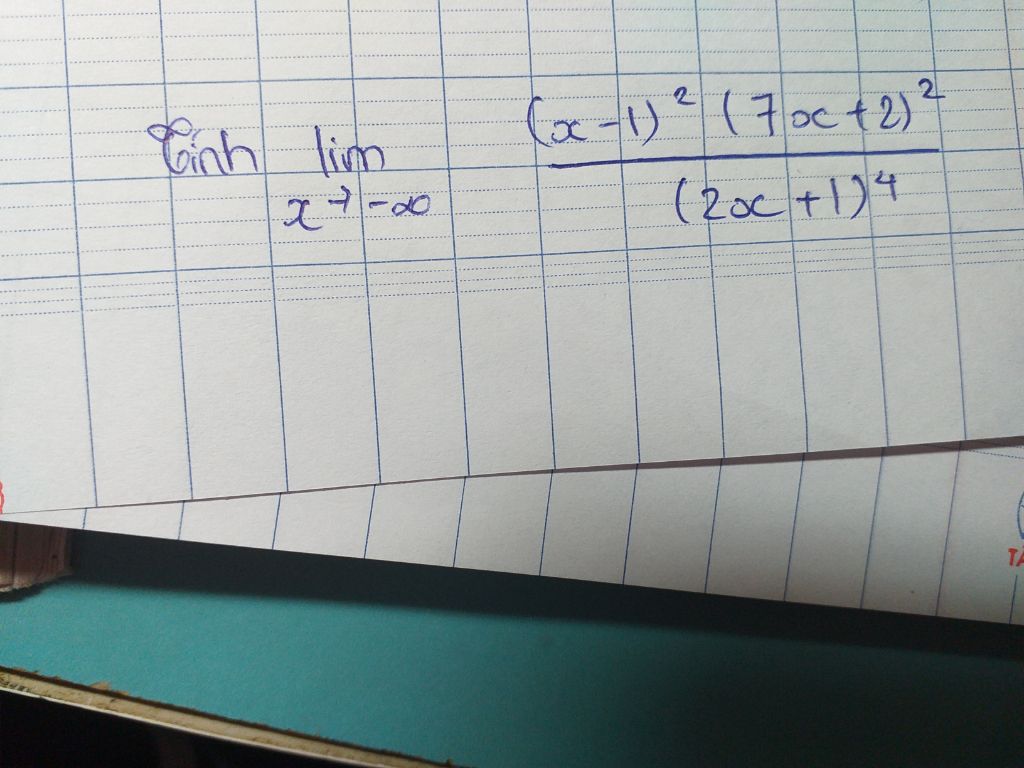 Tính lim x→-∞ (x-1)² (7x+2)² / (2x+1)⁴
TÂ